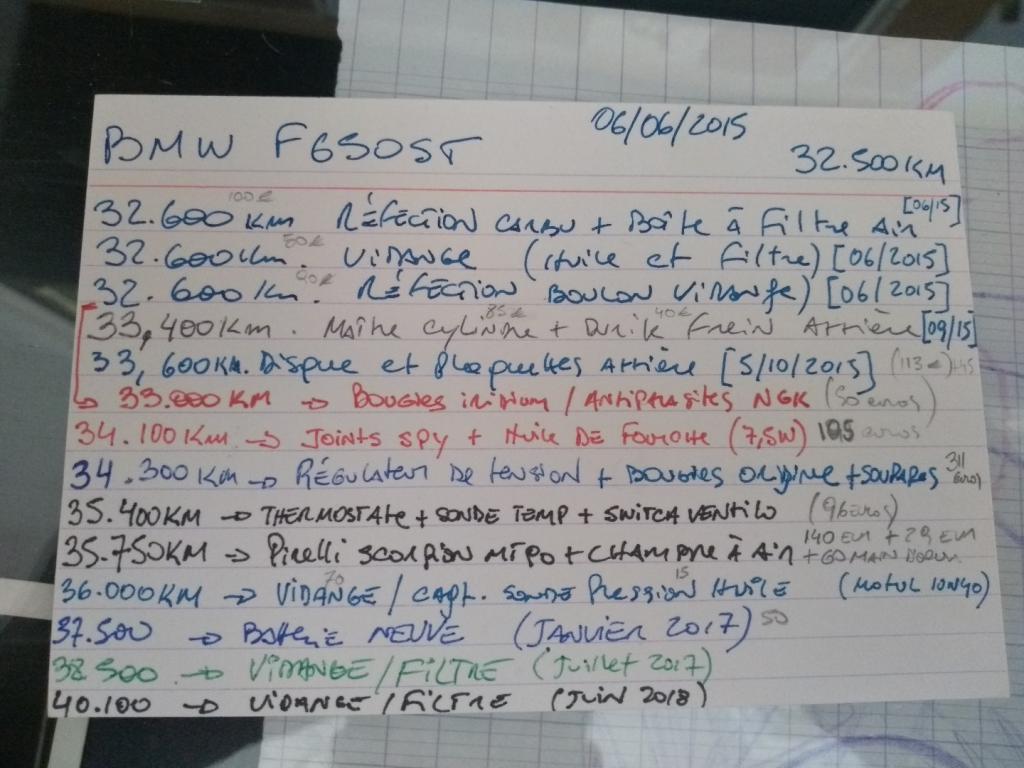 BMW F650ST 06/06/2015 32.500KM
32.600KM 100€ RÉFECTION CARBU + BOîTE À FiLTRE AiR [06/15]
32.600Km. 80€ ViDANGE (Huile et Filtre) [06/2015]
32.600 Km. 90€ RÉFECTION BOULON ViDANGE) [06/2015]
33,400Km. MAîTRE CYLINDRE 85€ + DURiTE 40€ FREIN ARRiÈRE [09/15]
33,600KM. Disque et Plaquettes ARRiÈRE [5/10/2015] (113€)+45
33.000KM → BOUGIES iRiDiUM / ANTiPARASITES NGK (50 euros)
34.100KM → JOINTS SPY + HUiLE DE FOURCHE (7,5W) 105 euros
34.300KM → RÉGULATEUR DE TENSION + BOUGIES ORIGINE + SOUPAPES 311 euros
35.400KM → THERMOSTATE + SONDE TEMP + SWITCH VENTILO (96euros)
35.750KM → PiRELLi SCORPiON MT90 + CHAMBRE À AiR 140 EUR + 29 EUR + 60 MAIN D'OEUV.
36.000KM → ViDANGE 70 / CAPT. SONDE PRESSiON 15 HUiLE (MOTUL 10W40)
37.500 → BATTERIE NEUVE (JANVIER 2017) 50
38.500 → ViDANGE/FiLTRE (Juillet 2017)
40.100 → ViDANGE/FiLTRE (JUiN 2018)